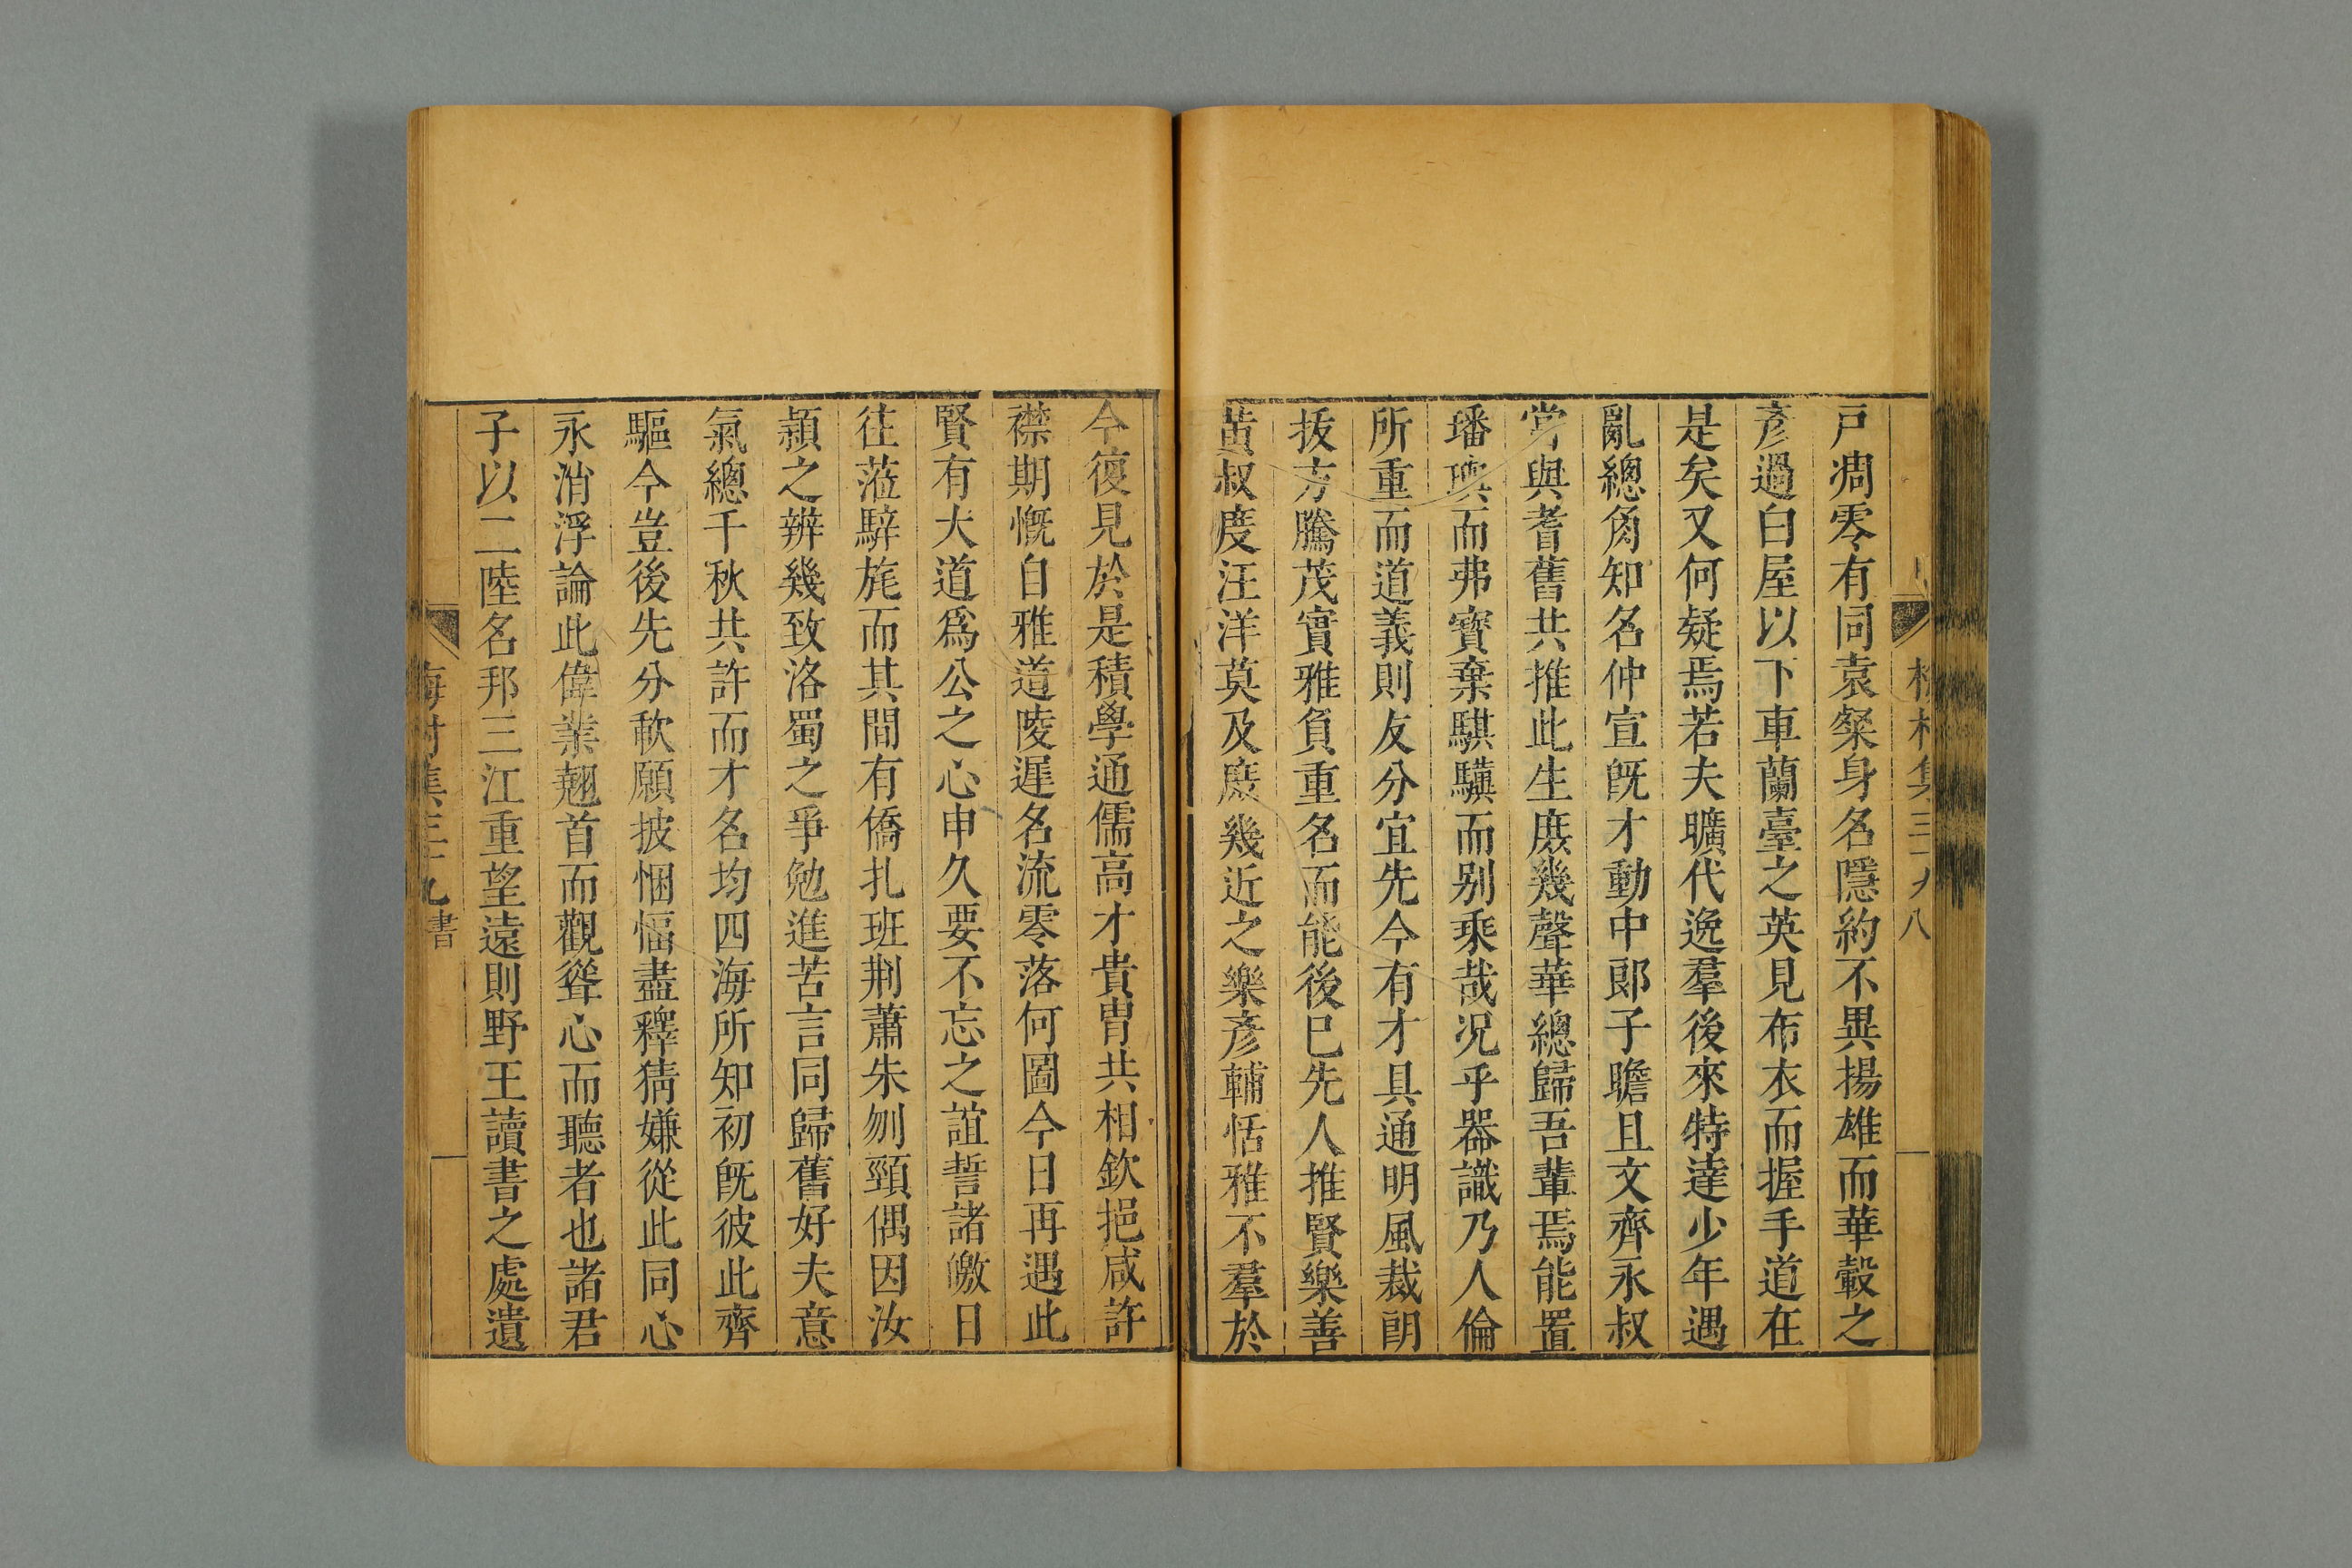 戸凋零有同袁粲身名隱約不異揚雄而華轂之
彥過白屋以下車蘭臺之英見布衣而握手道在
是矣又何疑焉若夫曠代逸羣後來特達少年遇
亂總角知名仲宣旣才動中郎子瞻且文齊永叔
常與耆舊共推此生庶幾聲華總歸吾輩焉能置
璠璵而弗寳棄騏驥而别乘哉况乎器識乃人倫
所重而道義則友分宜先今有才具通明風裁朗
拔方騰茂實雅負重名而能後已先人推賢樂善
黃叔度汪洋莫及庶幾近之樂彥輔恬雅不羣於
今復見於是積學通儒高才貴胄共相欽挹咸許
襟期慨自雅道陵遲名流零落何圖今日再遇此
賢有大道為公之心申久要不忘之誼誓諸皦日
往蒞騂旄而其間有僑札班荆蕭朱刎頸偶因汝
潁之辨幾致洛蜀之爭勉進苦言同歸舊好夫意
氣總千秋共許而才名均四海所知初旣彼此齊
驅今豈後先分軟願披悃愊盡釋猜嫌從此同心
永消浮論此偉業翹首而觀聳心而聽者也諸君
子以二陸名邦三江重望遠則野王讀書之處遺
梅村集三十九書